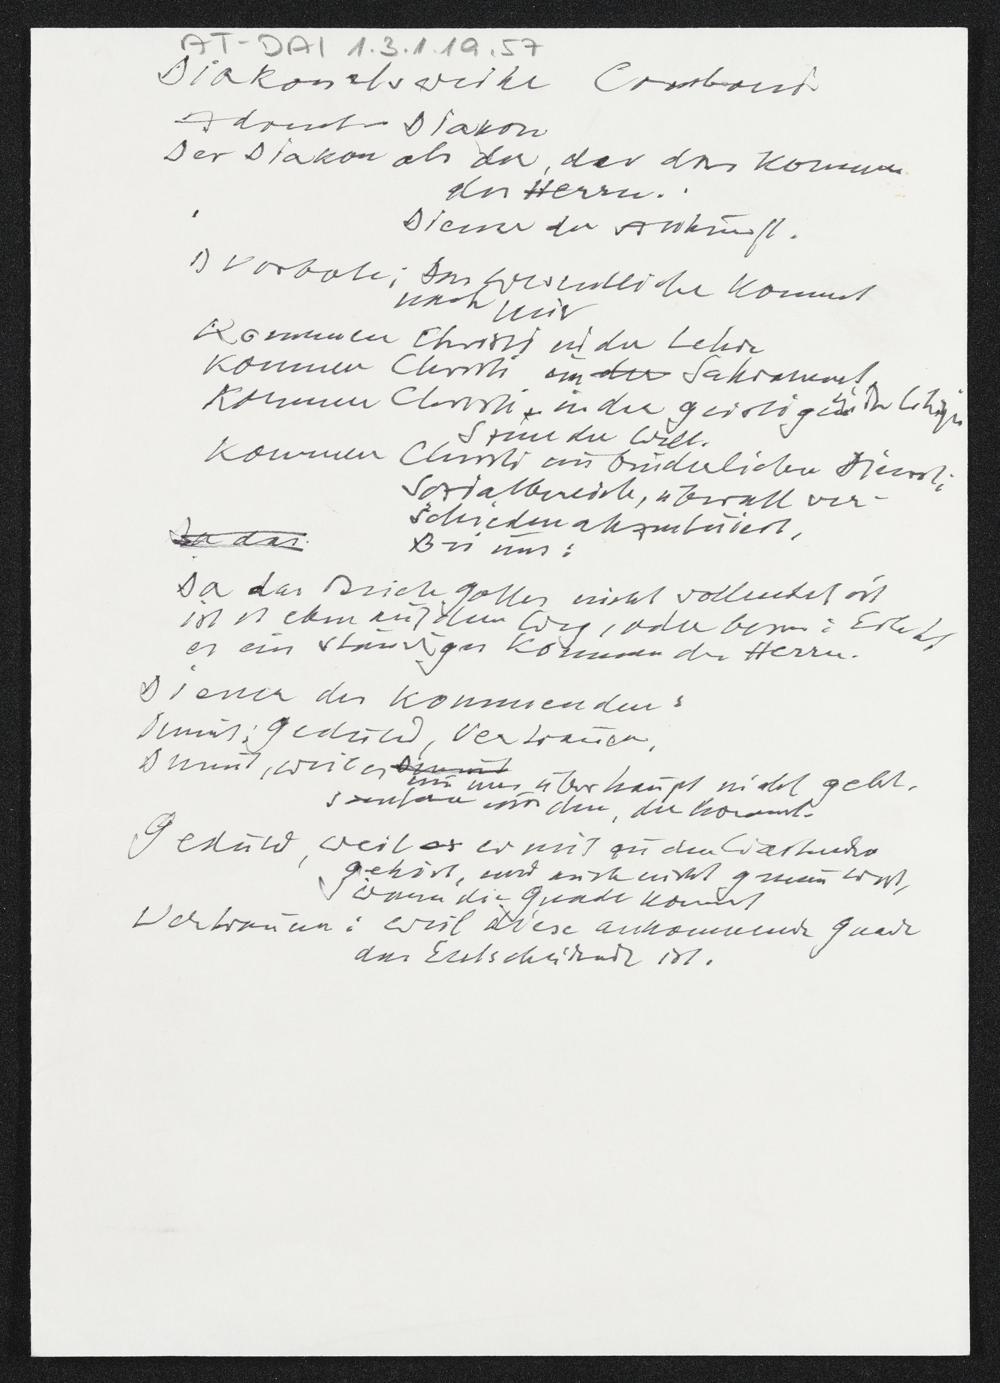 AT-DAI 1.3.1.19.57
Diakonatsweihe Comboni
Advent Diakon
Der Diakon als der, der das Kommen
des Herrn.
Diener der Ankunft.
Vorbote: Das Wesentliche kommt
nach mir
Kommen Christi in der Lehre
Kommen Christi im der Sakrament,
Kommen Christi in der geistigen
Kommen Christi im brüderlichen Dienst;
Sozialbereich, überall ver-
schieden akzentuiert,
Bei uns:
Da das
Da das Reich Gottes nicht vollendet ist
ist es eben auf dem Weg, oder besser: Erlebt
es ein ständiges Kommen des Herrn.
Diener des Kommenden:
Demut, Geduld, Vertrauen.
Demut, weil es Demut
um uns überhaupt nicht geht.
sondern um den, der kommt.
Geduld, weil es er mit zu den Wartenden
gehört, und auch nicht genau weiss,
wann die Gnade kommt
Vertrauen: weil diese ankommende Gnade
das Entscheidende ist.